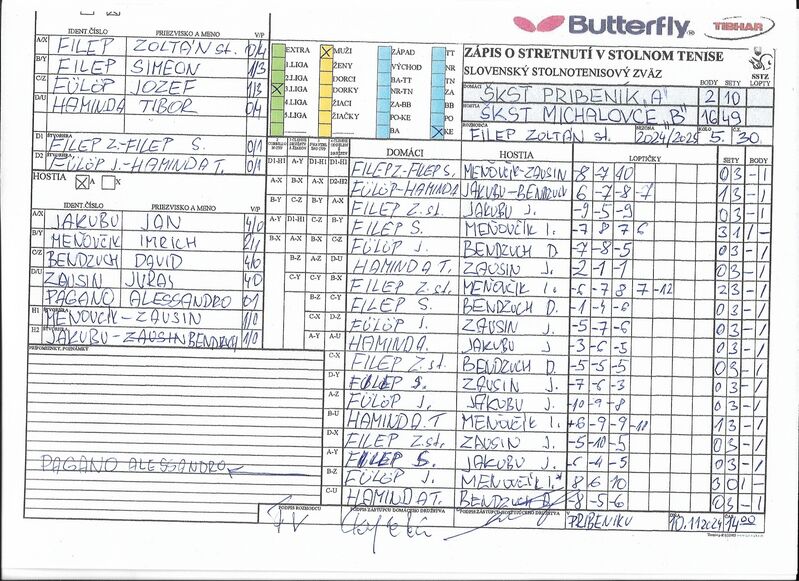 Butterfly
TIBHAR
ZÁPIS O STRETNUTÍ V STOLNOM TENISE
SLOVENSKÝ STOLNOTENISOVÝ ZVÄZ
SSTZ
DOMÁCI BODY SETY LOPTY
ŠKST PRIBENÍK "A" 2 10
HOSTIA
ŠKST MICHALOVCE "B" 16 49
ROZHODCA SEZÓNA KOLO Č.Z.
FILEP ZOLTÁN st. 2024/2025 5. 30
IDENT ČÍSLO PRIEZVISKO A MENO V/P
A/X FILEP ZOLTÁN st. 0/4
B/Y FILEP SIMEON 1/3
C/Z FÜLÖP JOZEF 1/3
D/U HAMINDA TIBOR 0/4
D1 ŠTVORHRA FILEP Z.-FILEP S. 0/1
D2 FÜLÖP J.-HAMINDA T. 0/1
HOSTIA A X
IDENT. ČÍSLO PRIEZVISKO A MENO V/P
A/X JAKUBU JÁN 4/0
B/Y MEŇOVČÍK IMRICH
C/Z BENDZUCH DAVID 4/0
D/U ZAUSIN JURAJ 4/0
PAGANO ALESSANDRO 0/1
H1 ŠTVORHRA MEŇOVČÍK-ZAUSIN 1/0
H2 JAKUBU-BENDZUCH 1/0
PRIPOMIENKY, POZNÁMKY
PAGANO ALESSANDRO
EXTRA
1.LIGA
2.LIGA
3.LIGA
4.LIGA
5.LIGA
MUŽI
ŽENY
DORCI
DORKY
ŽIACI
ŽIAČKY
ZÁPAD
VÝCHOD
BA-TT
NR-TN
ZA-BB
PO-KE
BA
TT
NR
TN
ZA
BB
PO
KE
DOMÁCI HOSTIA LOPTIČKY SETY BODY
FILEP Z-FILEP S. MEŇOVČÍK-ZAUSIN -8 -7 -10 03 -1
FÜLÖP-HAMINDA JAKUBU-BENDZUCH 6 -7 -8 -7 13 -1
FILEP Z.st. JAKUBU J. -9 -5 -9 03 -1
FILEP S. MEŇOVČÍK I. -7 8 7 6 31 1-
FÜLÖP J. BENDZUCH D. -7 -8 -5 03 -1
HAMINDA T. ZAUSIN J. -2 -1 -1 03 -1
FILEP Z.st. MEŇOVČÍK I. -6 -7 8 7 -12 23 -1
FILEP S. BENDZUCH D. -1 -4 -6 03 -1
FÜLÖP J. ZAUSIN J. -5 -7 -6 03 -1
HAMINDA. JAKUBU J -3 -6 -3 03 -1
FILEP Z.st. BENDZUCH D. -5 -5 -5 03 -1
FILEP S. ZAUSIN J. -7 -6 -3 03 -1
FÜLÖP J. JAKUBU J. -10 -9 -8 03 -1
HAMINDA T MEŇOVČÍK I. +6 -9 -9 13 -1
FILEP Z.st. ZAUSIN J. -5 -10 -5 03 -1
FILEP S. JAKUBU J. -6 -4 -5 03 -1
FÜLÖP J. MEŇOVČÍK I. 8 6 10 30 1-
HAMINDA T. BENDZUCH D. -8 -5 -6 03 -1
PODPIS ROZHODCU PODPIS ZÁSTUPCU DOMÁCEHO DRUŽSTVA PODPIS ZÁSTUPCU HOSŤUJÚCEHO DRUŽSTVA
V PRIBENÍKU DŇA 10.11.2024 ČAS 14:00